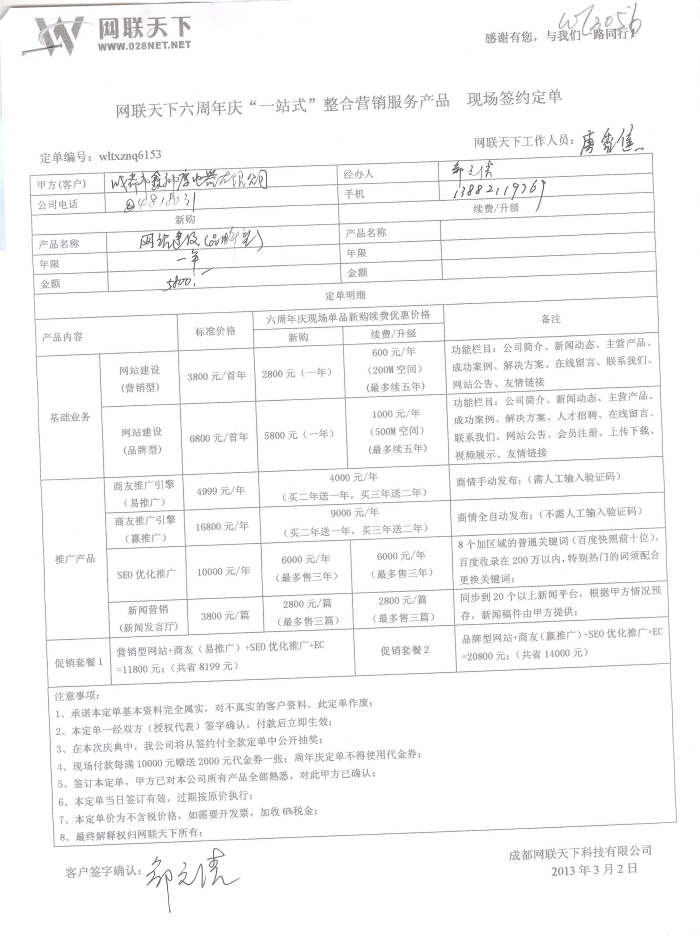 网联天下
WWW.028NET.NET
wl3056
感谢有您，与我们一路同行！
网联天下六周年庆“一站式”整合营销服务产品 现场签约定单
定单编号：wltxznq6153
网联天下工作人员：
甲方(客户) 成都市鑫 电器有限公司 经办人 邹元倩
公司电话 84818031 手机 13882119769
新购 续费/升级
产品名称 网站建设(品牌型) 产品名称
年限 一年 年限
金额 5800.- 金额
定单明细
产品内容 标准价格 六周年庆现场单品新购续费优惠价格 备注
新购 续费/升级
基础业务 网站建设(营销型) 3800 元/首年 2800 元（一年） 600 元/年(200M 空间)(最多续五年) 功能栏目：公司简介、新闻动态、主营产品、
成功案例、解决方案、在线留言、联系我们、
网站公告、友情链接
网站建设(品牌型) 6800 元/首年 5800 元（一年） 1000 元/年(500M 空间)(最多续五年) 功能栏目：公司简介、新闻动态、主营产品、
成功案例、解决方案、人才招聘、在线留言、
联系我们、网站公告、会员注册、上传下载、
视频展示、友情链接
推广产品 商友推广引擎（易推广） 4999 元/年 4000 元/年（买二年送一年，买三年送二年） 商情手动发布；（需人工输入验证码）
商友推广引擎（赢推广） 16800 元/年 9000 元/年（买二年送一年，买三年送二年） 商情全自动发布；（不需人工输入验证码）
SEO 优化推广 10000 元/年 6000 元/年（最多售三年） 6000 元/年（最多售三年） 8 个加区域的普通关键词（百度快照前十位），
百度收录在 200 万以内，特别热门的词须配合
更换关键词；
新闻营销(新闻发言厅) 3800 元/篇 2800 元/篇（最多售三篇） 2800 元/篇（最多售三篇） 同步到 20 个以上新闻平台，根据甲方情况预
存，新闻稿件由甲方提供；
促销套餐 1 营销型网站+商友（易推广）+SEO 优化推广+EC
=11800 元；（共省 8199 元）
促销套餐 2 品牌型网站+商友（赢推广）+SEO 优化推广+EC
=20800 元；（共省 14000 元）
注意事项：
1、承诺本定单基本资料完全属实，对不真实的客户资料，此定单作废；
2、本定单一经双方（授权代表）签字确认，付款后立即生效；
3、在本次庆典中，我公司将从签约付全款定单中公开抽奖；
4、现场付款每满 10000 元赠送 2000 元代金券一张；周年庆定单不得使用代金券；
5、签订本定单，甲方已对本公司所有产品全部熟悉，对此甲方已确认；
6、本定单当日签订有效，过期按原价执行；
7、本定单价为不含税价格，如需要开发票，加收 6%税金；
8、最终解释权归网联天下所有；
客户签字确认：邹元倩
成都网联天下科技有限公司
2013 年 3 月 2 日